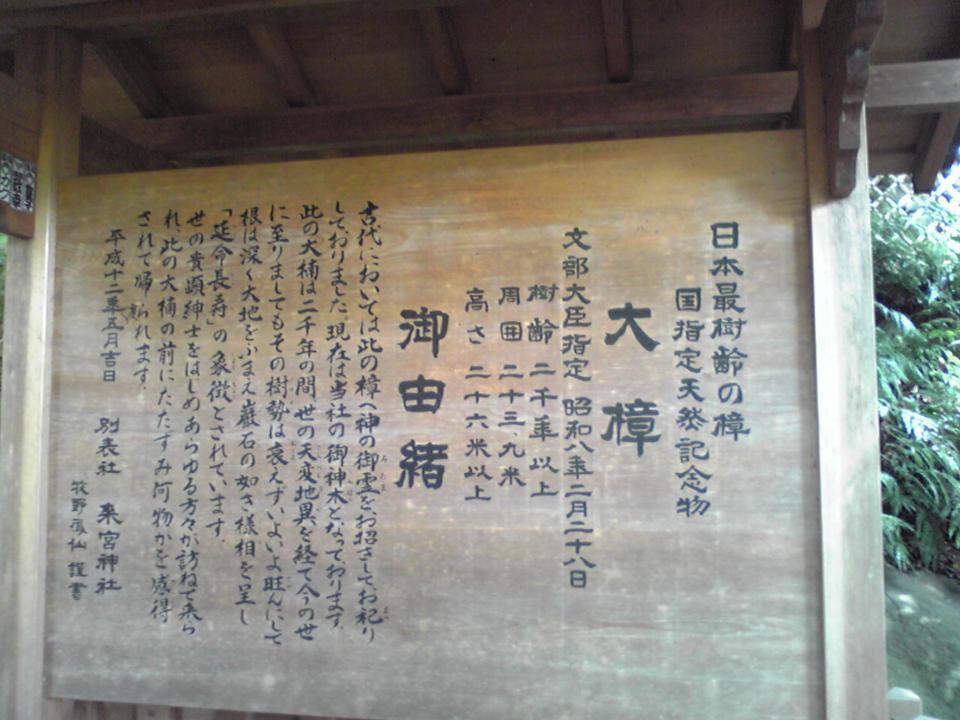 日本最樹齢の樟
国指定天然記念物
大樟
文部大臣指定 昭和八年二月二十八日
樹齢 二千年以上
周囲 二十三、九米
高さ 二十六米以上
御由緒
古代においては此の樟へ神の御霊をお招きしてお祀り
しておりました、現在は当社の御神木となっております、
此の大楠は二千年の間世の天変地異を経て今の世
に至りましてもその樹勢は衰えず、いよいよ旺んにして
根は深く大地をふまえ巌石の如き様相を呈し
「延命長寿」の象徴とされています、
世の貴顕紳士をはじめあらゆる方々が訪ねて来ら
れ、此の大楠の前にたたずみ何物かを感得
されて帰られます、
平成十二年五月吉日
別表社 来宮神社
牧野 仙 謹書